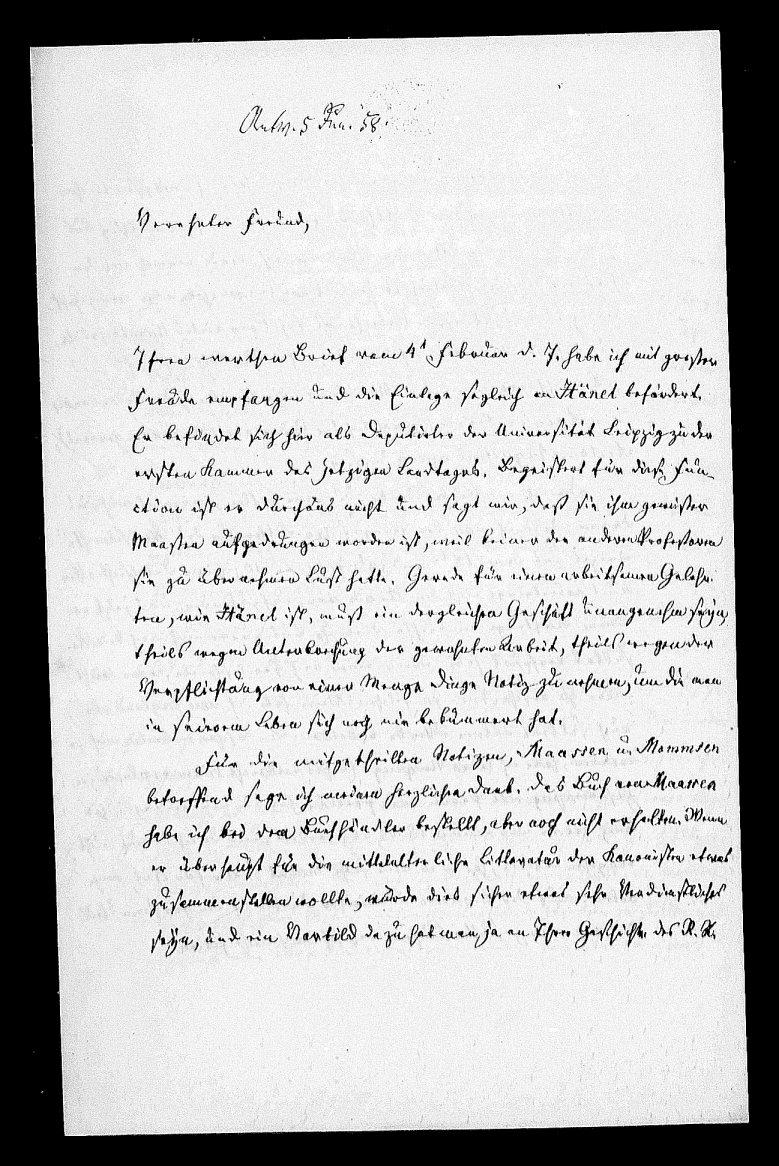 Antw. 5 Jun. 58.
Verehrter Freund,
Ihren werthen Brief vom 4t Februar d. J. habe ich mit großer
Freude empfangen und die Einlage sogleich an Hänel befördert.
Er befindet sich hier als Deputirter der Universität Leipzig zu der
ersten Kammer des jetzigen Landtages. Begeistert für diese Fun-
ction ist er durchaus nicht und sagt mir, daß sie ihm gewisser
Maasten aufgedrungen worden ist, weil keiner der anderen Professoren
sie zu übernehmen Lust hatte. Gerade für einen arbeitsamen Gelehr-
ten, wie Hänel ist, muß ein dergleichen Geschäft unangenehm seyn,
theils wegen Unterbrechung der gewohnten Arbeit, theils wegen der
Verpflichtung von einer Menge Dinge Notiz zu nehmen, um die man
in seinem Leben sich noch nie bekümmert hat.
Für die mitgetheilten Notizen, Maassen u. Mommsen
betreffend sage ich meinen herzlichen Dank. Das Buch von Maassen
habe ich bei dem Buchhändler bestellt, aber noch nicht erhalten. Wenn
er überhaupt für die mittelalterliche Litteratur der Kanonisten etwas
zusammenstellen wollte, würde dies sicher etwas sehr Verdienstliches
seyn, und ein Vorbild dazu hat man ja an Ihrer Geschichte des R. R.